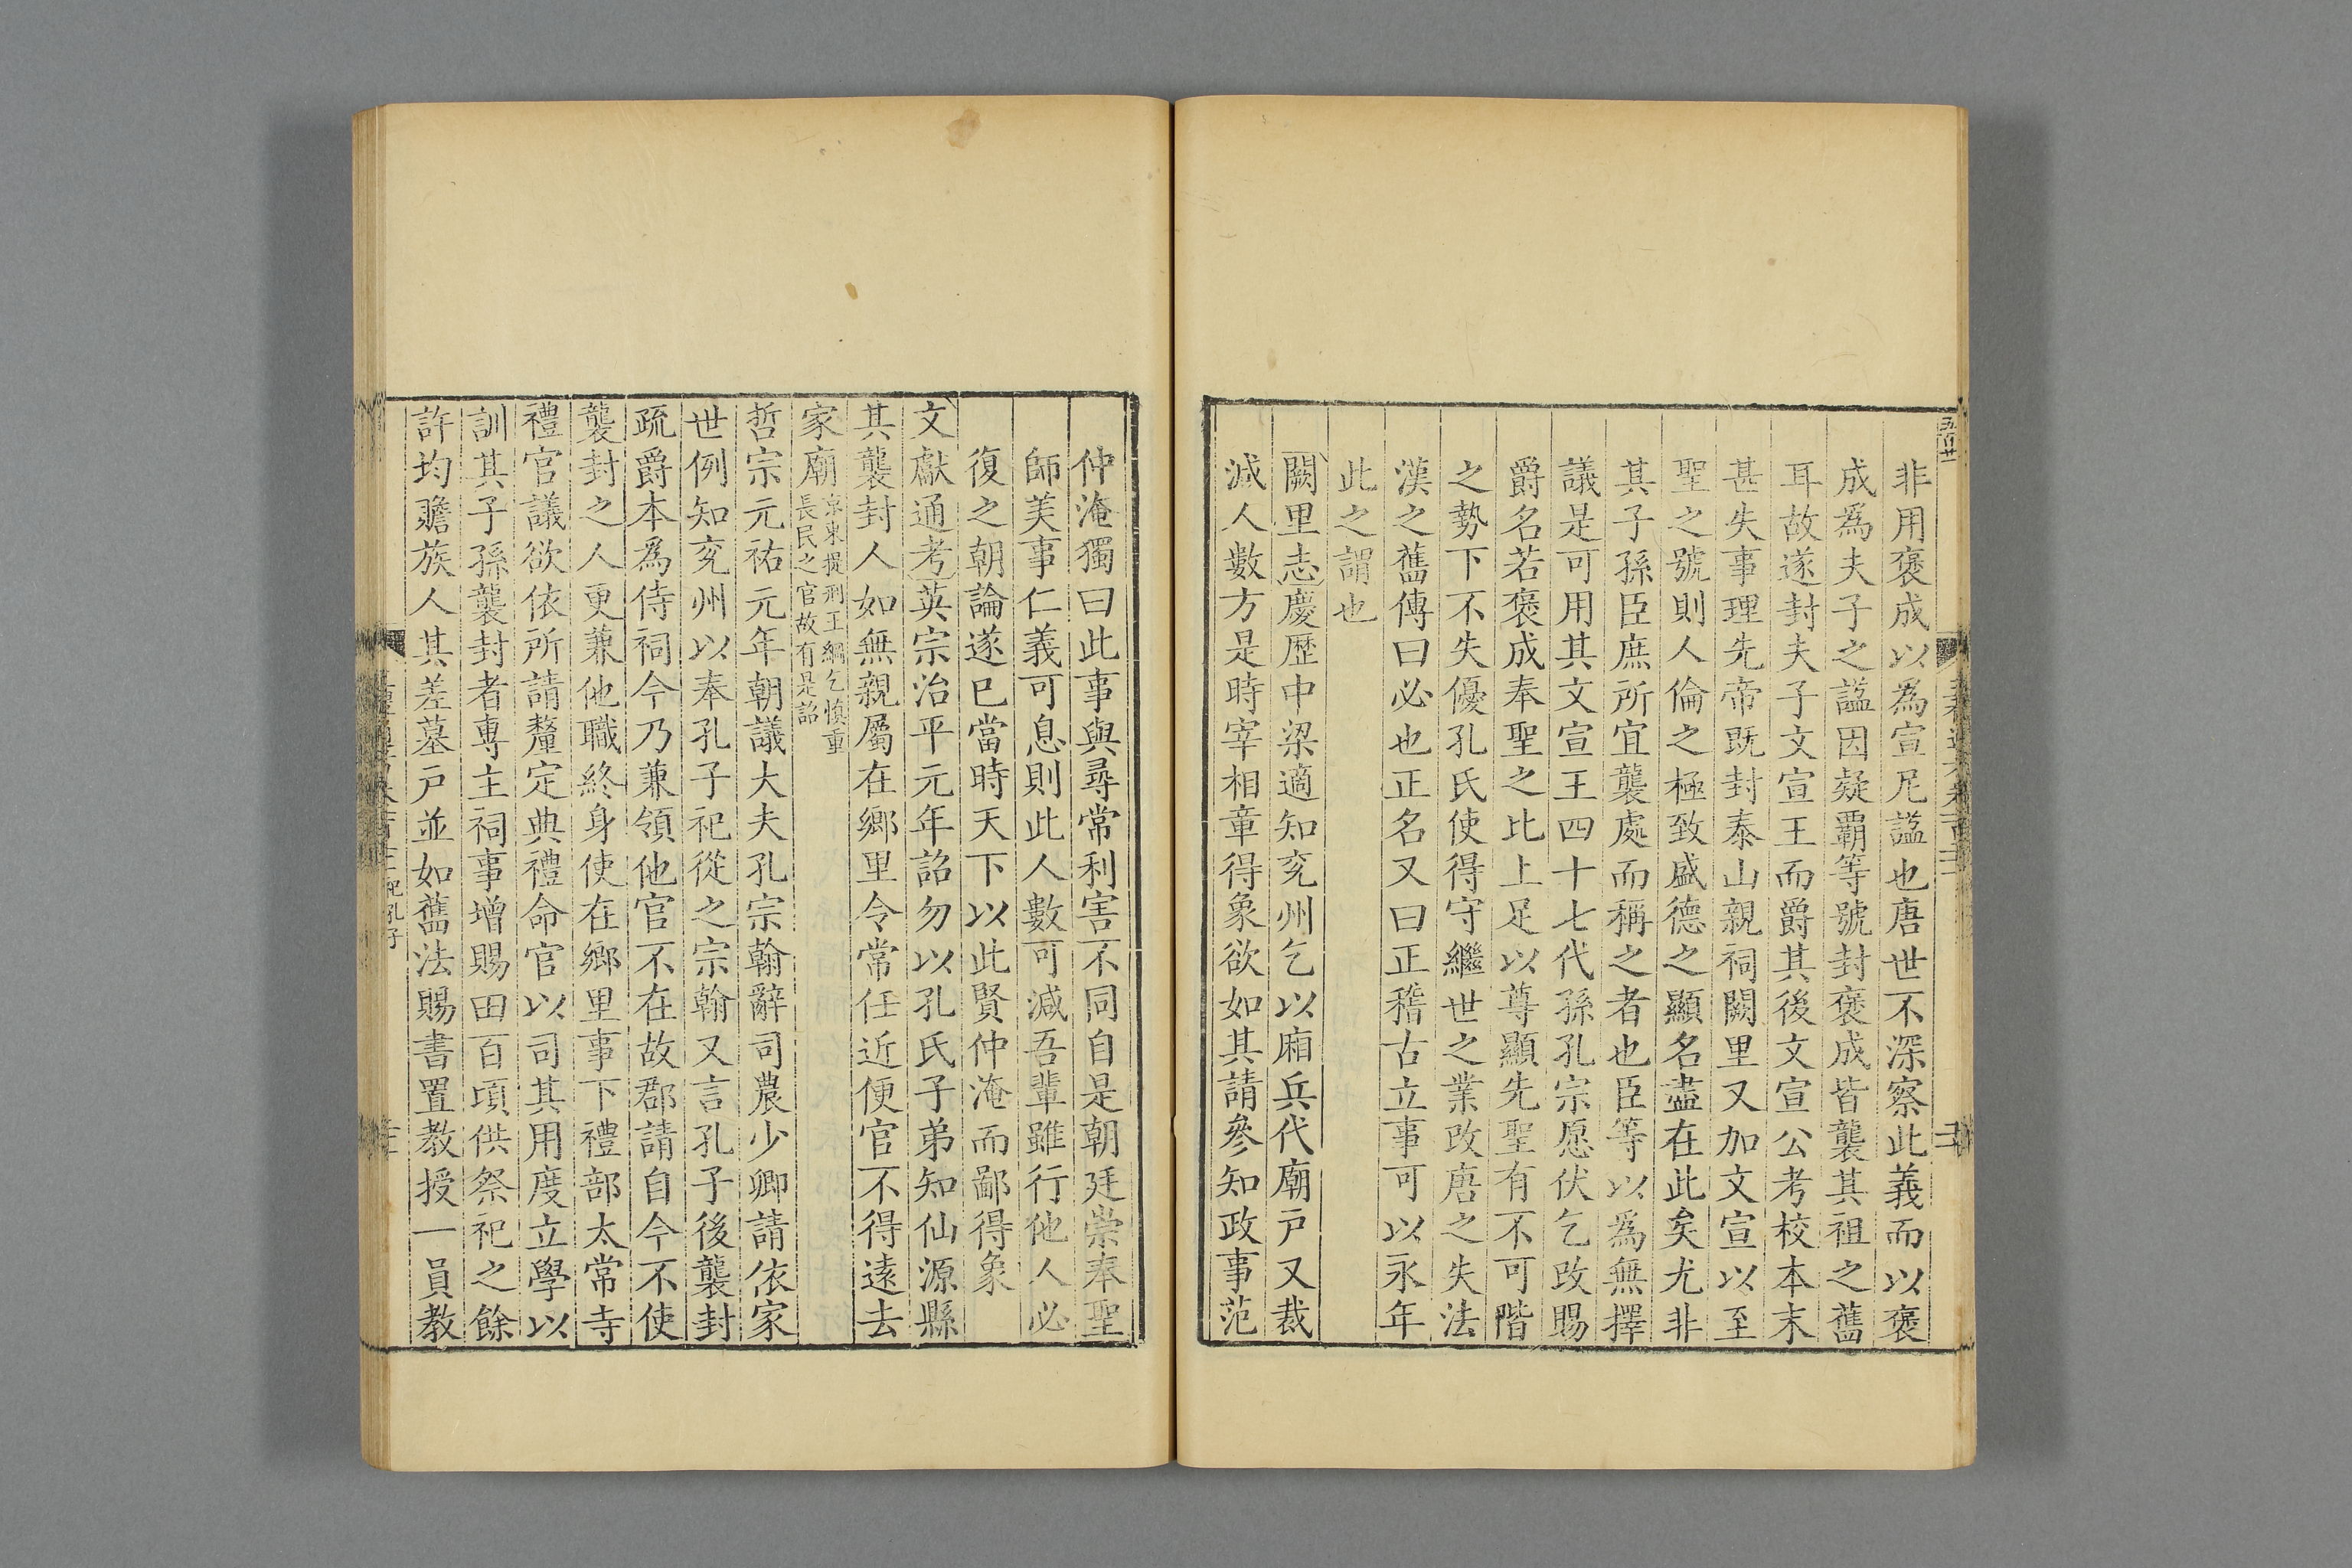 非用褒成以爲宣尼諡也唐世不深察此義而以褒
成爲夫子之諡因疑霸等號封褒成皆襲其祖之舊
耳故遂封夫子文宣王而爵其後文宣公考校本末
甚失事理先帝既封泰山親祠闕里又加文宣以至
聖之號則人倫之極致盛德之顯名盡在此矣尤非
其子孫臣庶所宜襲處而稱之者也臣等以爲無擇
議是可用其文宣王四十七代孫孔宗愿伏乞改賜
爵名若褒成奉聖之比上足以尊顯先聖有不可階
之勢下不失優孔氏使得守繼世之業改唐之失法
漢之舊傳曰必也正名又曰正稽古立事可以永年
此之謂也
闕里志慶歷中梁適知兖州乞以廂兵代廟戸又裁
減人數方是時宰相章得象欲如其請參知政事范
仲淹獨曰此事與尋常利害不同自是朝廷崇奉聖
師美事仁義可息則此人數可減吾輩雖行他人必
復之朝論遂已當時天下以此賢仲淹而鄙得象
文獻通考英宗治平元年詔勿以孔氏子弟知仙源縣
其襲封人如無親屬在鄉里令常任近便官不得遠去
家廟京東提刑王綱乞慎重
長民之官故有是詔
哲宗元祐元年朝議大夫孔宗翰辭司農少卿請依家
世例知兖州以奉孔子祀從之宗翰又言孔子後襲封
疏爵本爲侍祠今乃兼領他官不在故郡請自今不使
襲封之人更兼他職終身使在鄉里事下禮部太常寺
禮官議欲依所請釐定典禮命官以司其用度立學以
訓其子孫襲封者專主祠事增賜田百頃供祭祀之餘
許均贍族人其差墓戸並如舊法賜書置教授一員教
祀孔子